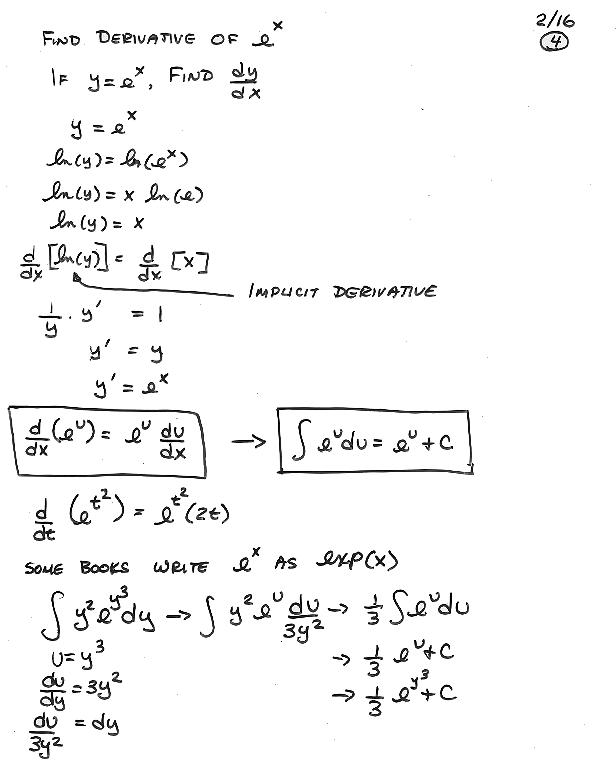 2/16
4
FIND DERIVATIVE OF e^x
IF y = e^x, FIND dy/dx
y = e^x
ln(y) = ln(e^x)
ln(y) = x ln(e)
ln(y) = x
d/dx [ln(y)] = d/dx [x]
IMPLICIT DERIVATIVE
1/y · y' = 1
y' = y
y' = e^x
d/dx (e^u) = e^u du/dx → ∫ e^u du = e^u + C
d/dt (e^t^2) = e^t^2 (2t)
SOME BOOKS WRITE e^x AS exp(x)
∫ y^2 e^y^3 dy → ∫ y^2 e^u du/3y^2 → 1/3 ∫ e^u du
u = y^3 → 1/3 e^u + C
du/dy = 3y^2 → 1/3 e^y^3 + C
du/3y^2 = dy